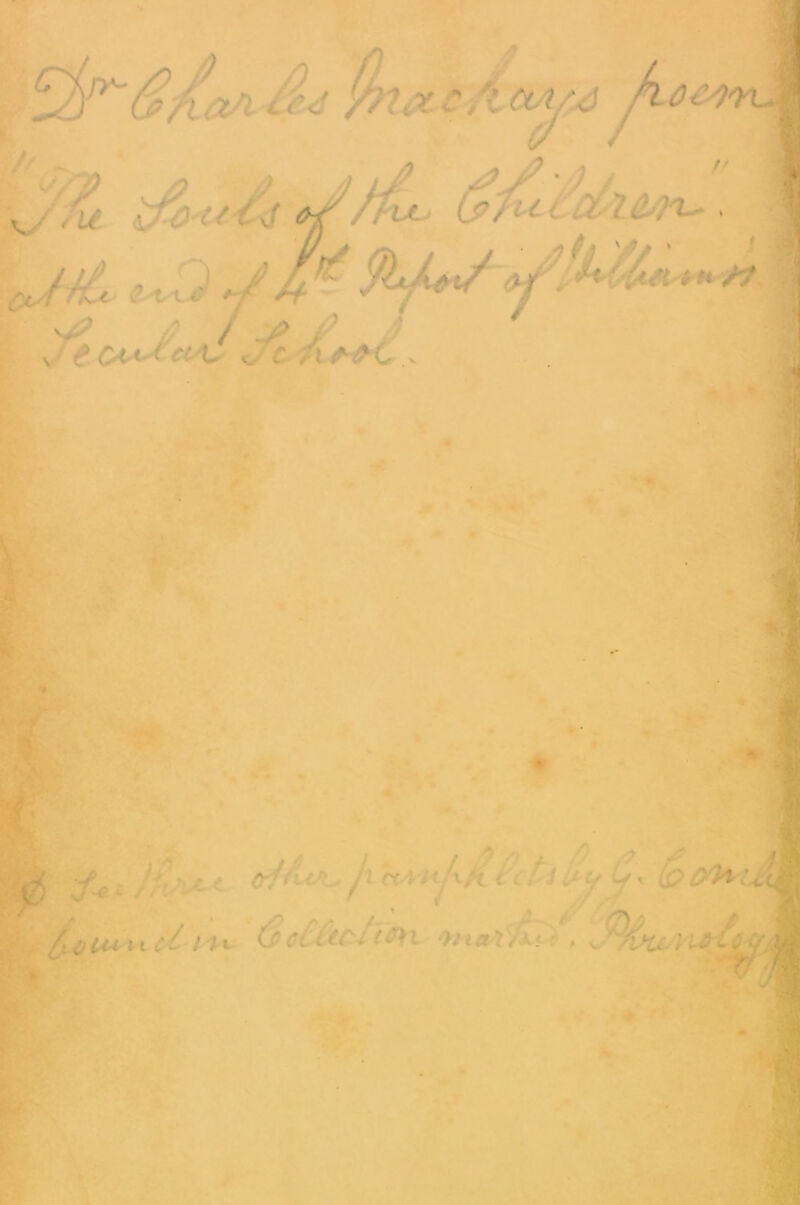 Dr Charles Mackays poem
"The Souls of the Children".
at the end of 4th Report of Williams's
Secular School.
φ See three other pamphlets by G. Combe
bound in Collection marked. Phrenology